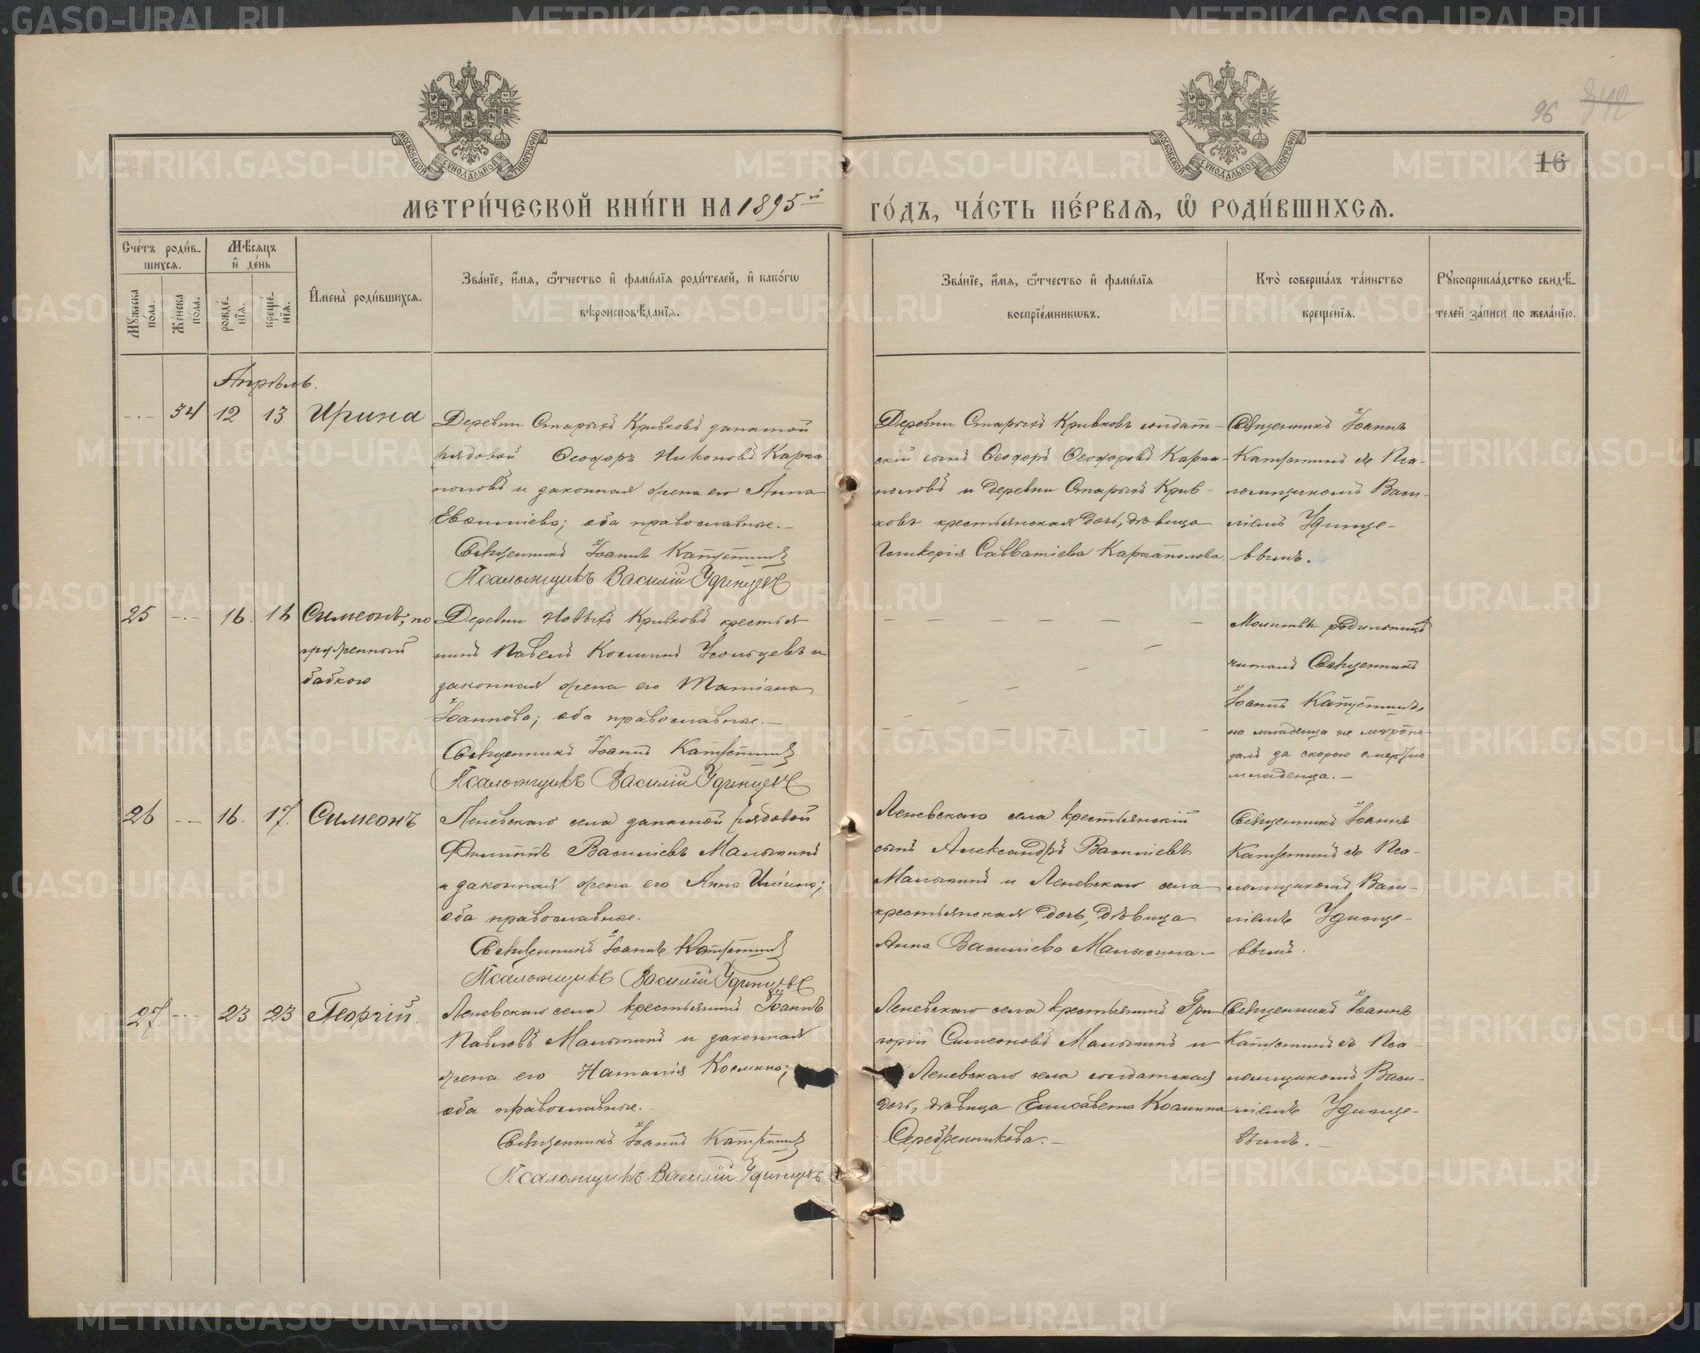 96 342
16
МЕТРИ́ЧЕСКОЙ КНИ́ГИ НА 1895й
ГО́ДЪ, ЧА́СТЬ ПЕ́РВАЯ, Ѡ РОДИ́ВШИХСЯ.
Сче́тъ роди́в-
шихся.
Мꙋ́жеска по́ла.
Же́нска по́ла.
Мѣ́сяцъ
и де́нь
рожде́-
нїя.
креще́-
нїя.
Имена̀ роди́вшихся.
Зва́нїе, и́мя, ѻ́тчество и фами́лїя роди́телей, и како́гѡ
вѣроисповѣ́данїя.
Зва́нїе, и́мя, ѻ́тчество и фами́лїя
воспрїе́мникѡвъ.
Кто̀ соверша́лъ та́инство
креще́нїя.
Рꙋкоприкла́дство свидѣ́-
телей за́писи по жела́нїю.
Апрѣль.
34 12 13 Ирина
Деревни Старыхъ Кривковъ запасной
рядовой Ѳеодоръ Никоновъ Карпа
половъ и законная жена его Анна
; оба православные.-
Священникъ Іоаннъ Капустинъ
Псаломщикъ Василій Удинцевъ
Деревни Старыхъ Кривковъ солдат-
скій сынъ Ѳеодоръ Ѳеодоровъ Карпа-
половъ и деревни Старыхъ Крив-
ковъ крестьянская дочь, дѣвица
Гликерія Савватіева Карпаполова.
Священникъ Іоаннъ
Капустинъ съ Пса-
ломщикомъ Васи-
ліемъ Удинце-
вымъ.
25 16. 16 Симеонъ, по
груженный
бабкою
Деревни Новыхъ Кривковъ крестья
нинъ Павелъ Косминъ Усольцевъ и
законная жена его Татіана
Іоаннова; оба православные.-
Священникъ Іоаннъ Капустинъ
Псаломщикъ Василій Удинцевъ
Молитвы родильницѣ
читалъ Священникъ
Іоаннъ Капустинъ,
но младенца не мѵропо-
залъ за скорою смертію
младенца.-
26 16. 17. Симеонъ
Леневскаго села запасной рядовой
Филиппъ Василіевъ Малыгинъ
и законная жена его Анна Иліина;
оба православные.
Священникъ Іоаннъ Капустинъ
Псаломщикъ Василій Удинцевъ
Леневскаго села крестьянскій
сынъ Александръ Василіевъ
Малыгинъ и Леневскаго села
крестьянская дочь, дѣвица
Анна Василіева Малыгина.-
Священникъ Іоаннъ
Капустинъ съ Пса-
ломщикомъ Васи-
ліемъ Удинце-
вымъ.
27 23 23 Георгій.
Леневскаго села крестьянинъ Іоаннъ
Павловъ Малыгинъ и законная
жена его Наталія Космина;
оба православные.-
Священникъ Іоаннъ Капустинъ
Псаломщикъ Василій Удинцевъ
Леневскаго села крестьянинъ Гри-
горій Симеоновъ Малыгинъ и
Леневскаго села солдатская
дочь, дѣвица Елисавета Космина
Серебренникова.-
Священникъ Іоаннъ
Капустинъ съ Пса-
ломщикомъ Васи-
ліемъ Удинце-
вымъ.-
METRIKI.GASO-URAL.RU